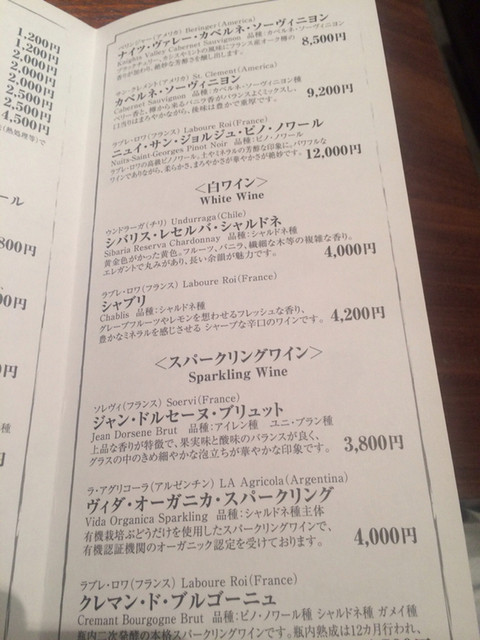 1,200円
1,200円
2,000円
2,000円
2,000円
2,500円
4,500円
(熱処理等)で
ール
,800円
ベリンジャー(アメリカ) Beringer(America)
ナイツ・ヴァレー・カベルネ・ソーヴィニヨン
Knights Valley Cabernet Sauvignon 品種:カベルネ・ソーヴィニヨン
ブラックチェリー、カシスやミントの風味にフランス産オーク樽の
香りが加わり、絶妙な芳醇さを醸し出します。
8,500円
サン・クレメント(アメリカ) St. Clement(America)
カベルネ・ソーヴィニヨン
Cabernet Sauvignon 品種:カベルネ・ソーヴィニヨン種
ベリー香と、樽から来るバニラ香がバランスよくミックスし、
口当りはまろやかながら、後味は豊かで重厚です。
9,200円
ラブレ・ロワ(フランス) Laboure Roi(France)
ニュイ・サン・ジョルジュ・ピノ・ノワール
Nuits-Saint-Georges Pinot Noir 品種:ピノ・ノワール
ラブレ・ロワの高級ピノノワール。土やミネラルの芳醇な印象に、パワフルな
ワインでありながら、柔らかさ、まろやかさが華やかさが絶妙です。
12,000円
<白ワイン>
White Wine
ウンドラーガ(チリ) Undurraga(Chile)
シバリス・レセルバ・シャルドネ
Sibaria Reserva Chardonnay 品種:シャルドネ種
黄金色がかった黄色。フルーツ、バニラ、繊細な木等の複雑な香り。
エレガントで丸みがあり、長い余韻が魅力です。
4,000円
ラブレ・ロワ(フランス) Laboure Roi(France)
シャブリ
Chablis 品種:シャルドネ種
グレープフルーツやレモンを想わせるフレッシュな香り、
豊かなミネラルを感じさせる シャープな辛口のワインです。
4,200円
<スパークリングワイン>
Sparkling Wine
ソレヴィ(フランス) Soervi(France)
ジャン・ドルセーヌ・ブリュット
Jean Dorsene Brut 品種:アイレン種 ユニ・ブラン種
上品な香りが特徴で、果実味と酸味のバランスが良く、
グラスの中のきめ細やかな泡立ちが華やかな印象です。
3,800円
ラ・アグリコーラ(アルゼンチン) LA Agricola(Argentina)
ヴィダ・オーガニカ・スパークリング
Vida Organica Sparkling 品種:シャルドネ種主体
有機栽培ぶどうだけを使用したスパークリングワインで、
有機認証機関のオーガニック認定を受けております。
4,000円
ラブレ・ロワ(フランス) Laboure Roi(France)
クレマン・ド・ブルゴーニュ
Cremant Bourgogne Brut 品種:ピノ・ノワール種 シャルドネ種 ガメイ種
瓶内二次発酵の本格スパークリングワインです。瓶内熟成は12カ月行われ、